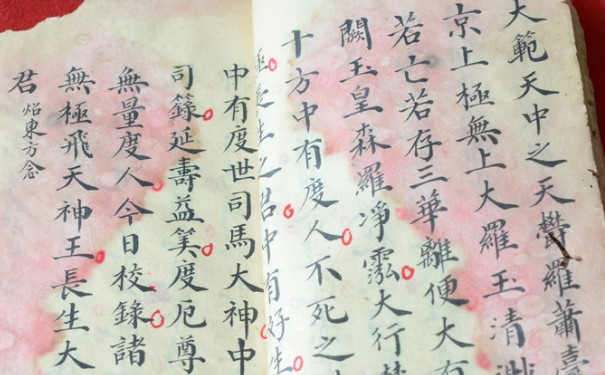 大範天中之天鬱羅蕭臺
京上極無上大羅玉清渺
若亡若存三華離便大有
闕玉皇森羅淨泓大行梵
十方中有度人不死之
長生之君中有好生
中有度世司馬大神中
司籙延壽益筭度厄尊
無量度人今日校錄諸
無極飛天神王長生大
君 焰東方念